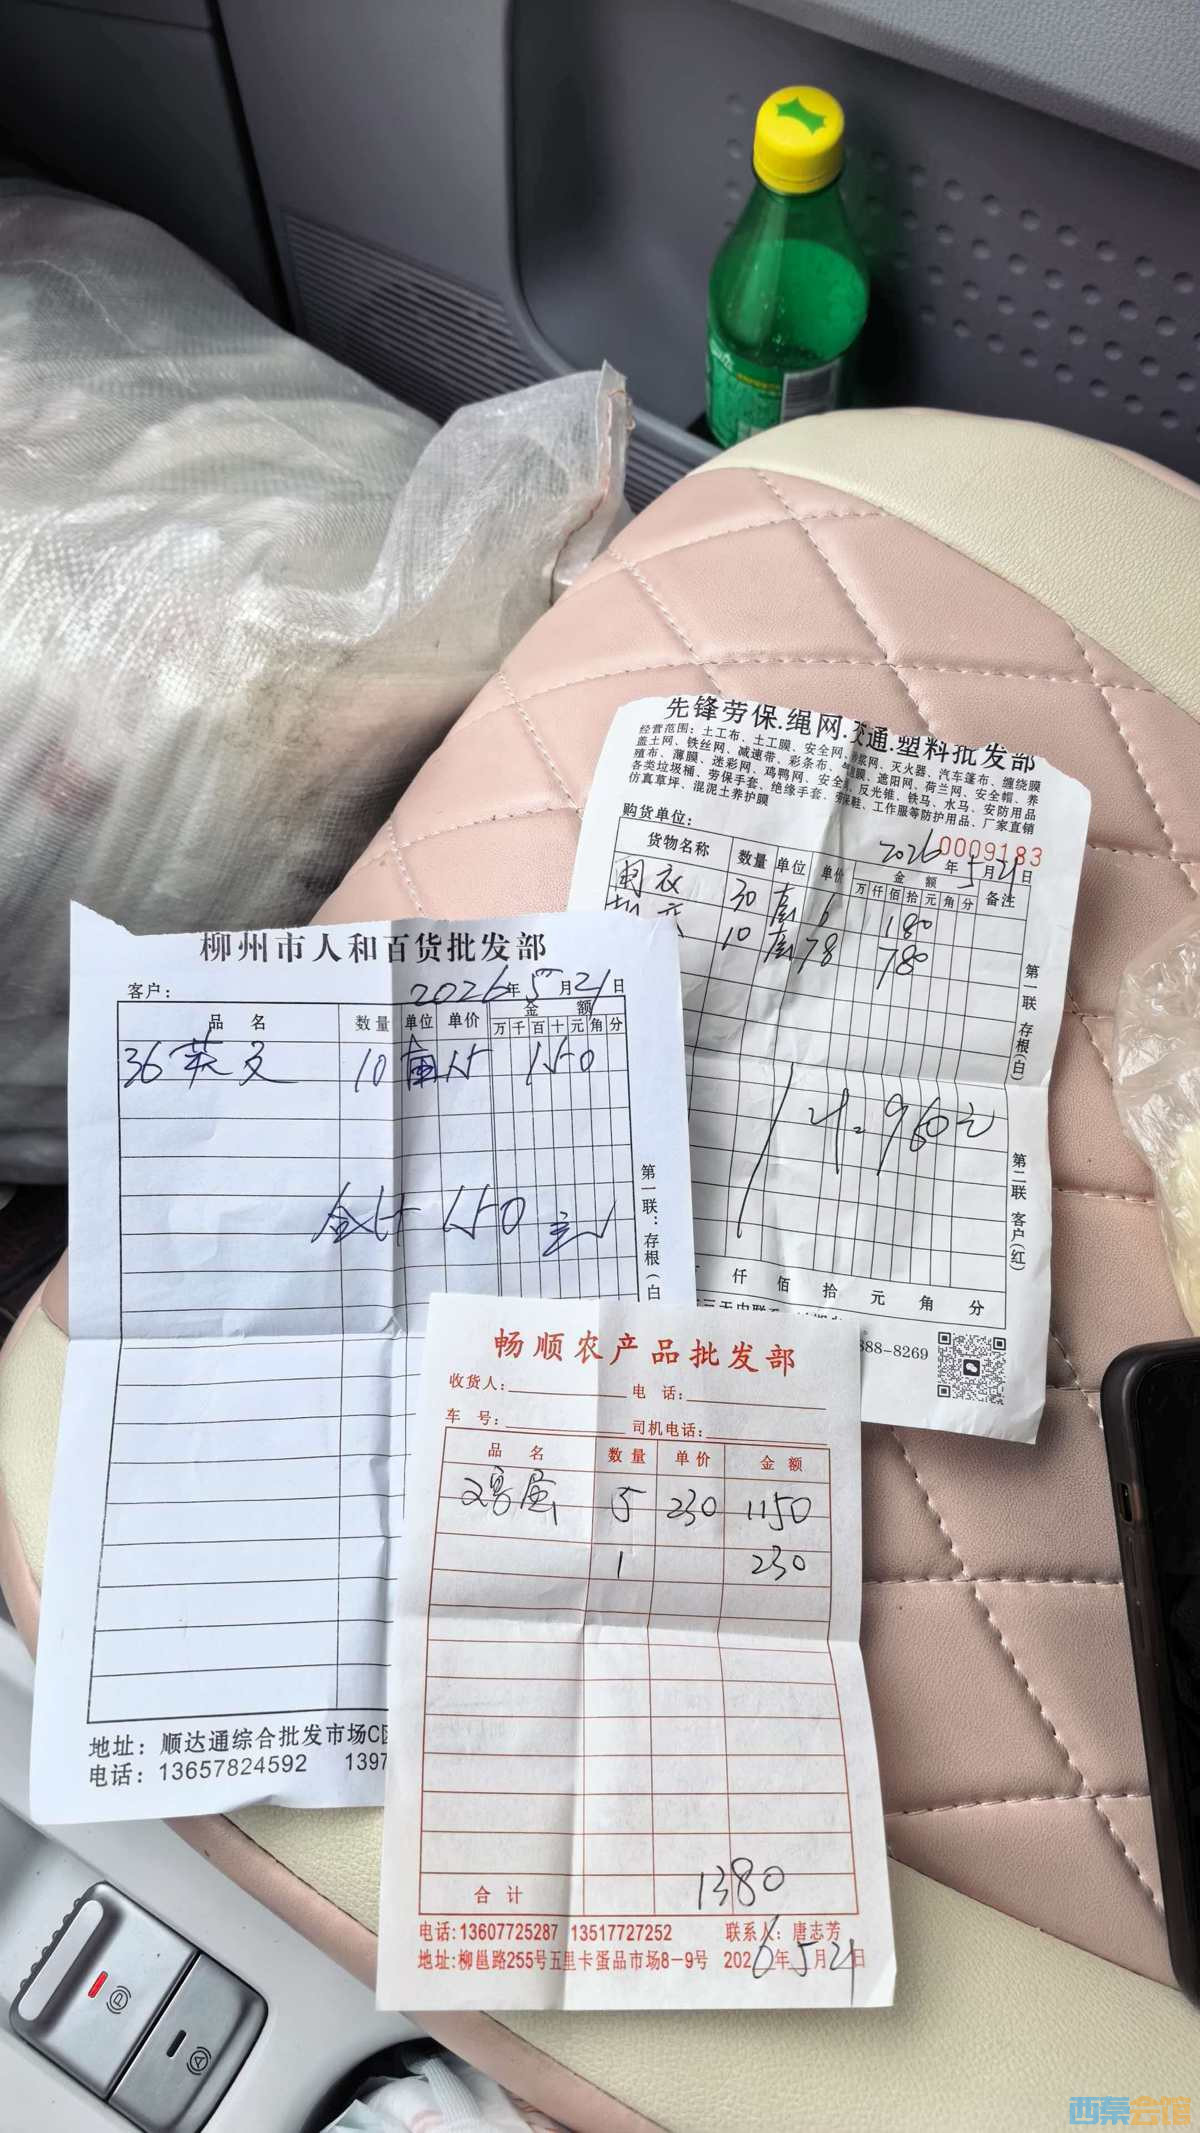 先锋劳保.绳网.交通.塑料批发部
经营范围：土工布、土工膜、安全网、
灭火器、汽车篷布、缠绕膜
盖土网、铁丝网、减速带、彩条布、
遮阳网、荷兰网、安全帽、养
殖布、薄膜、迷彩网、鸡鸭网、安全
反光锥、铁马、水马、安防用品
各类垃圾桶、劳保手套、绝缘手套、劳保鞋、工作服等防护用品、厂家直销
仿真草坪、混泥土养护膜
购货单位：
0009183
2026年5月21日
货物名称 数量 单位 单价 金额 备注
万 仟 佰 拾 元 角 分
雨衣 30 套 6 180
10 套 78 780
第一联 存根(白)
960元
第二联 客户(红)
仟 佰 拾 元 角 分
888-8269
柳州市人和百货批发部
客户： 2026年5月21日
品名 数量 单位 单价 金额
万 千 百 十 元 角 分
36 10 15 150
合计 150元
第一联：存根(白
地址：顺达通综合批发市场C区
电话：13657824592 1397
畅顺农产品批发部
收货人： 电话：
车号： 司机电话：
品名 数量 单价 金额
5 230 1150
1 230
合计 1380
电话:13607725287 13517727252 联系人：唐志芳
地址:柳邕路255号五里卡蛋品市场8-9号 2026年5月21日
西幕会馆